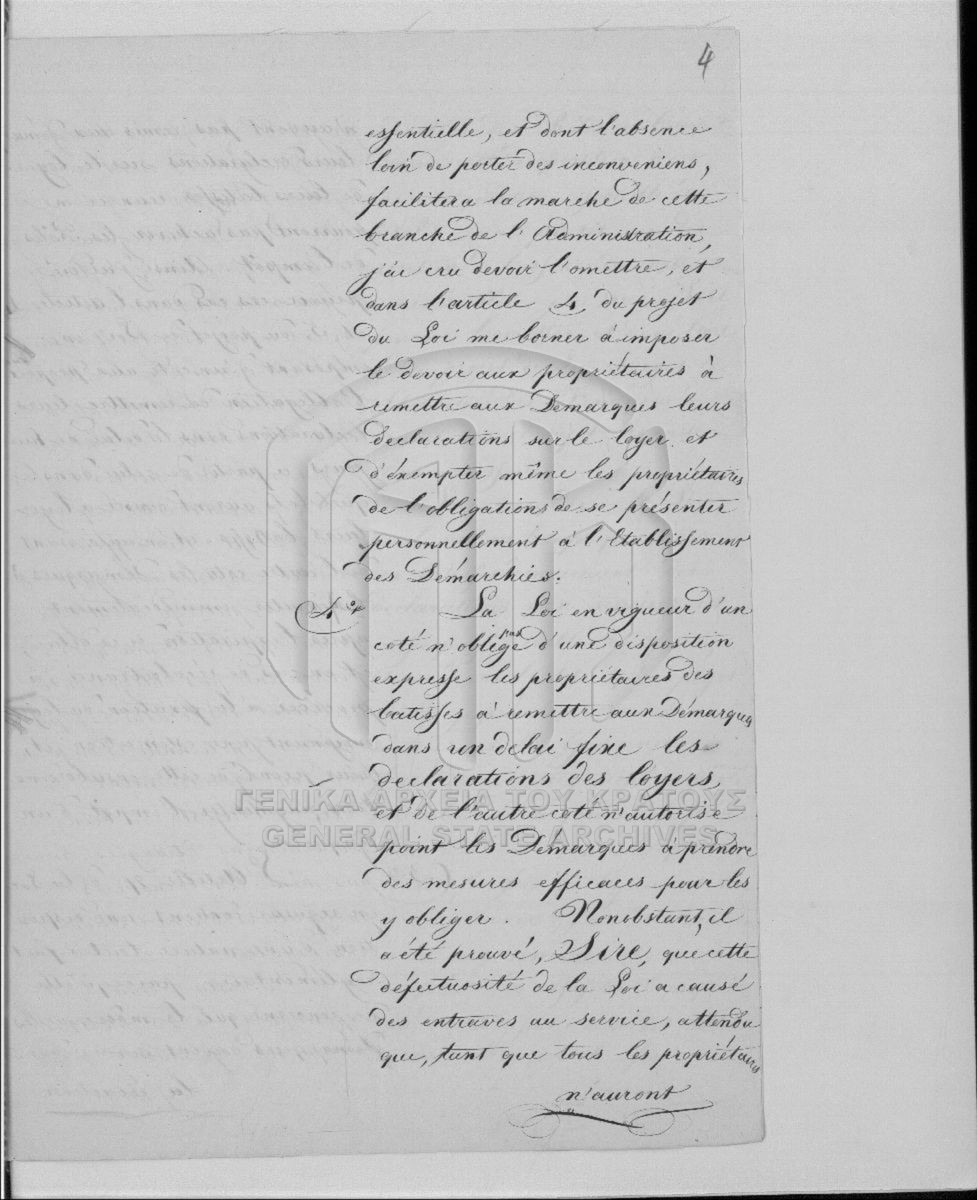 4
essentielle, et dont l'absence
loin de porter des inconveniens,
facilitera la marche de cette
branche de l'Administration,
j'ai cru devoir l'omettre, et
dans l'article 4 du projet
du Loi me borner à imposer
le devoir aux propriétaires à
remettre aux Demarques leurs
declarations sur le loyer et
d'éxempter même les propriétaires
de l'obligations de se présenter
personnellement à l'Etablissement
des Démarchies.
4º La Loi en vigueur d'un
coté n'oblige pas d'une disposition
expresse les propriétaires des
batisses à remettre aux Démarques
dans un delai fixe les
declarations des loyers,
et de l'autre coté n'autorise
point les Demarques à prendre
des mesures efficaces pour les
y obliger. Nonobstant, il
a été prouvé, Sire, que cette
défectuosité de la Loi a causé
des entraves au service, attendu
que, tant que tous les propriétaires
n'auront
ΓΕΝΙΚΑ ΑΡΧΕΙΑ ΤΟΥ ΚΡΑΤΟΥΣ
GENERAL STATE ARCHIVES